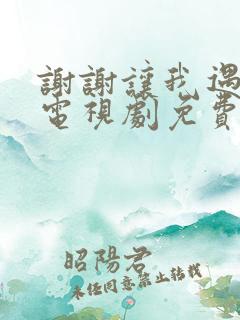 謝謝讓我遇
電視劇免費
昭陽君
未經同意禁止轉載